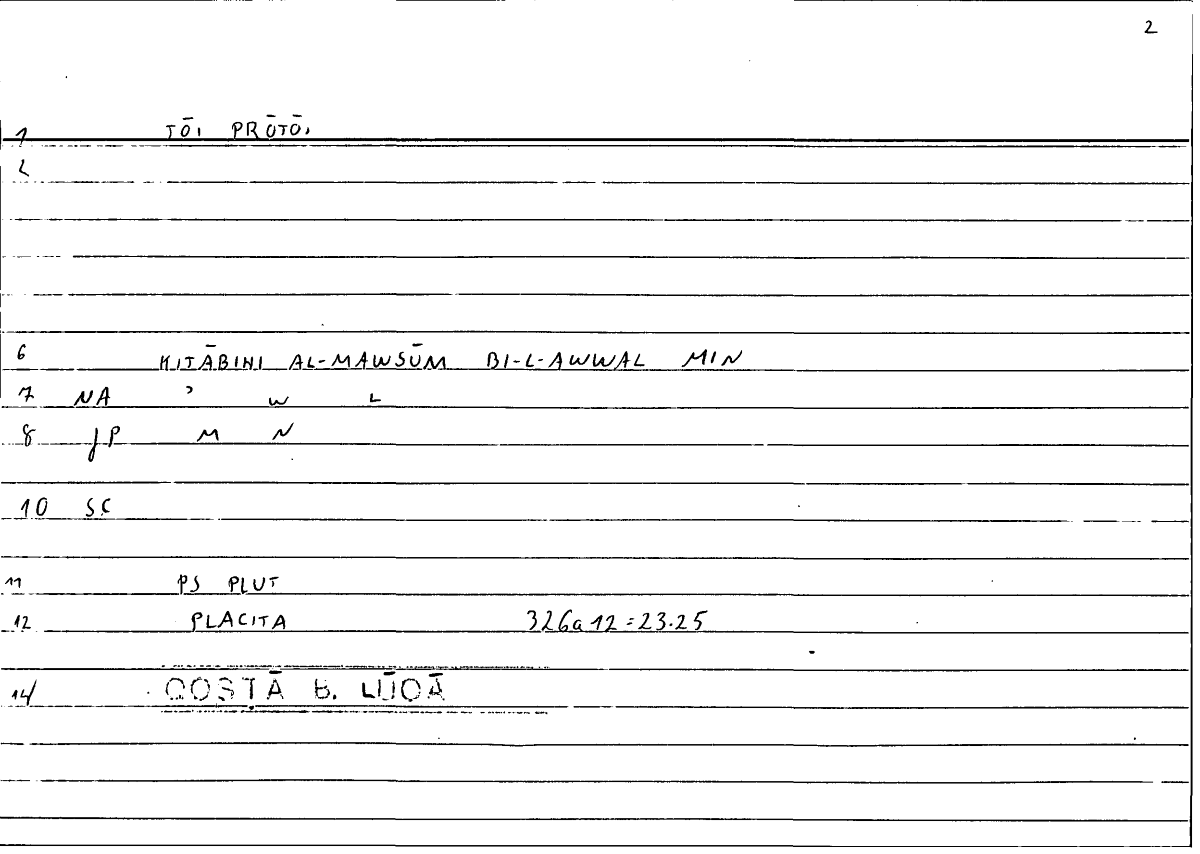 2
1 TŌI PRŌTŌI
2
6 KITĀBIHI AL-MAWSŪM BI-L-AWWAL MIN
7 NA ʾ W L
8 JP M N
10 SC
11 PS PLUT
12 PLACITA 326a12=23.25
14 QOSṬĀ B. LŪQĀ